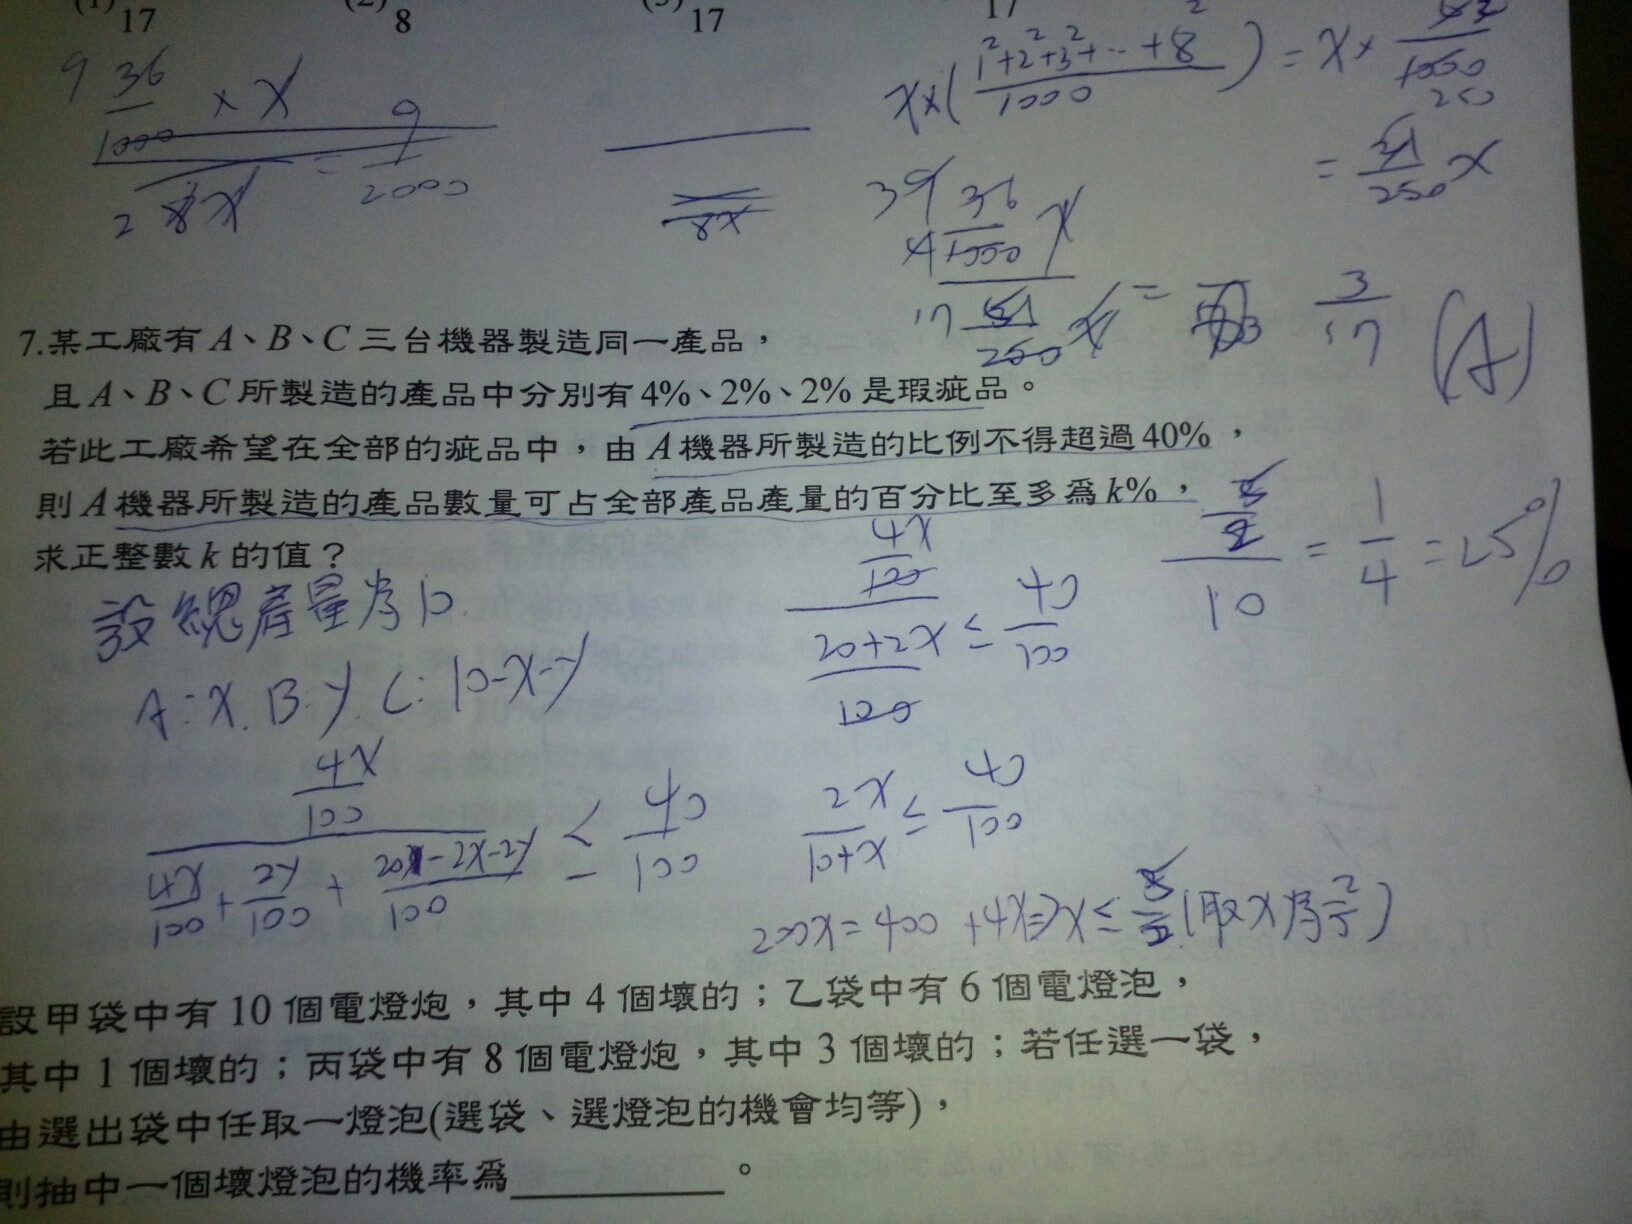 (1) 17 (2) 8 (3) 17 17
9 36/1000 × x
2 8x = 9/2000
8x
x×(1²+2²+3²+...+8²/1000) = x×
1000
250
= 51/250 x
39 36
4 1000 x
17 51/250 x = 3/17 (A)
7.某工廠有A、B、C三台機器製造同一產品，
且A、B、C所製造的產品中分別有4%、2%、2%是瑕疵品。
若此工廠希望在全部的疵品中，由A機器所製造的比例不得超過40%，
則A機器所製造的產品數量可占全部產品產量的百分比至多為k%，
求正整數k的值？
設總產量為10.
A:x. B.y. C:10-x-y
4x/100
4x/100 + 2y/100 + 20-2x-2y/100 ≤ 40/100
4x/100
20+2x/100 ≤ 40/100
2x/10+x ≤ 40/100
200x=400+4x⇒x≤ 5/2 (取x為5/2)
5/2
10 = 1/4 = 25%
設甲袋中有10個電燈炮，其中4個壞的；乙袋中有6個電燈泡，
其中1個壞的；丙袋中有8個電燈炮，其中3個壞的；若任選一袋，
由選出袋中任取一燈泡(選袋、選燈泡的機會均等)，
則抽中一個壞燈泡的機率為________。